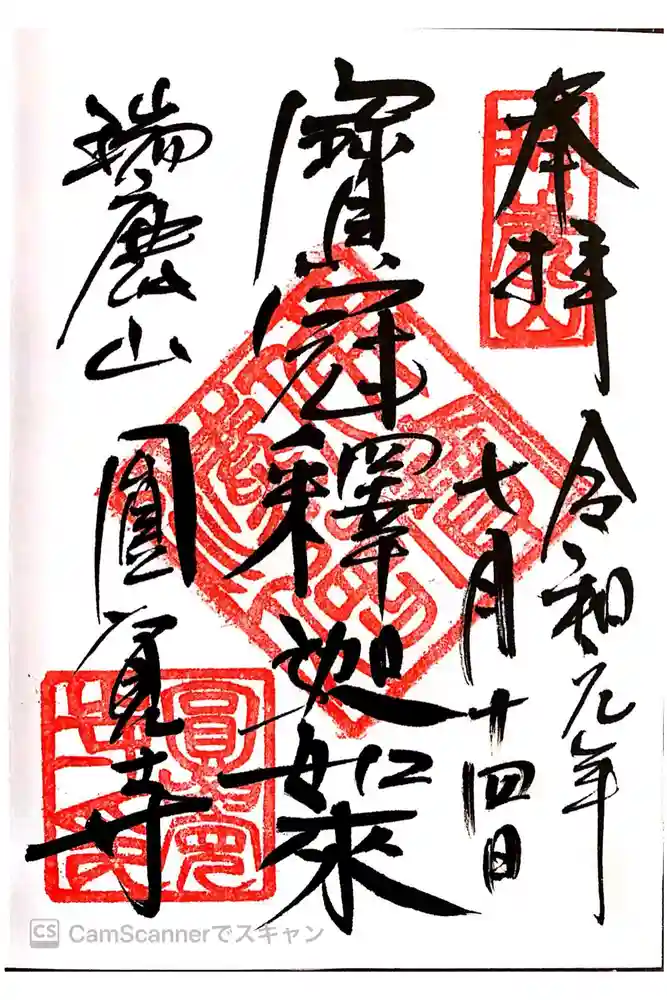 奉拝
令和元年
七月十四日
寳冠釋迦如來
瑞鹿山
圓覺寺
CS CamScannerでスキャン